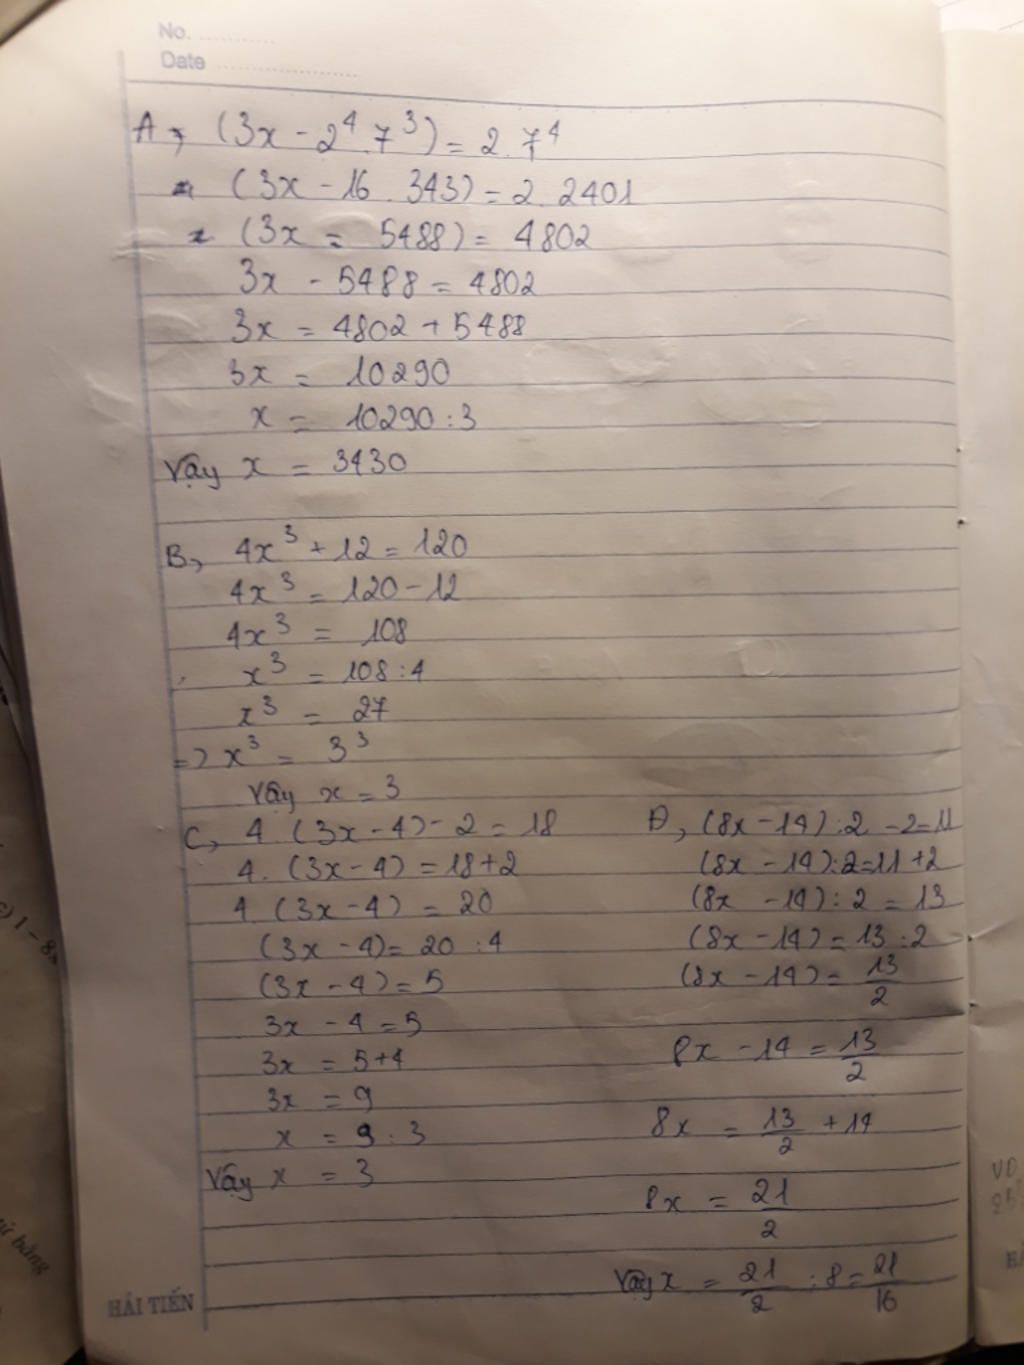 No. ..........
Date ....................
A, (3x - 2⁴. 7³) = 2. 7⁴
(3x - 16 . 343) = 2. 2401
(3x = 5488) = 4802
3x - 5488 = 4802
3x = 4802 + 5488
3x = 10290
x = 10290 : 3
Vậy x = 3430
B, 4x³ + 12 = 120
4x³ = 120 - 12
4x³ = 108
x³ = 108 : 4
x³ = 27
=> x³ = 3³
Vậy x = 3
C, 4. (3x - 4) - 2 = 18
4. (3x - 4) = 18 + 2
4. (3x - 4) = 20
(3x - 4) = 20 : 4
(3x - 4) = 5
3x - 4 = 5
3x = 5 + 4
3x = 9
x = 9 : 3
Vậy x = 3
Đ, (8x - 14) : 2 - 2 = 11
(8x - 14) : 2 = 11 + 2
(8x - 14) : 2 = 13
(8x - 14) = 13 : 2
(8x - 14) = 13/2
8x - 14 = 13/2
8x = 13/2 + 14
8x = 21/2
Vậy x = 21/2 : 8 = 21/16
HẢI TIẾN
c) 1 - 8x
bằng
VD